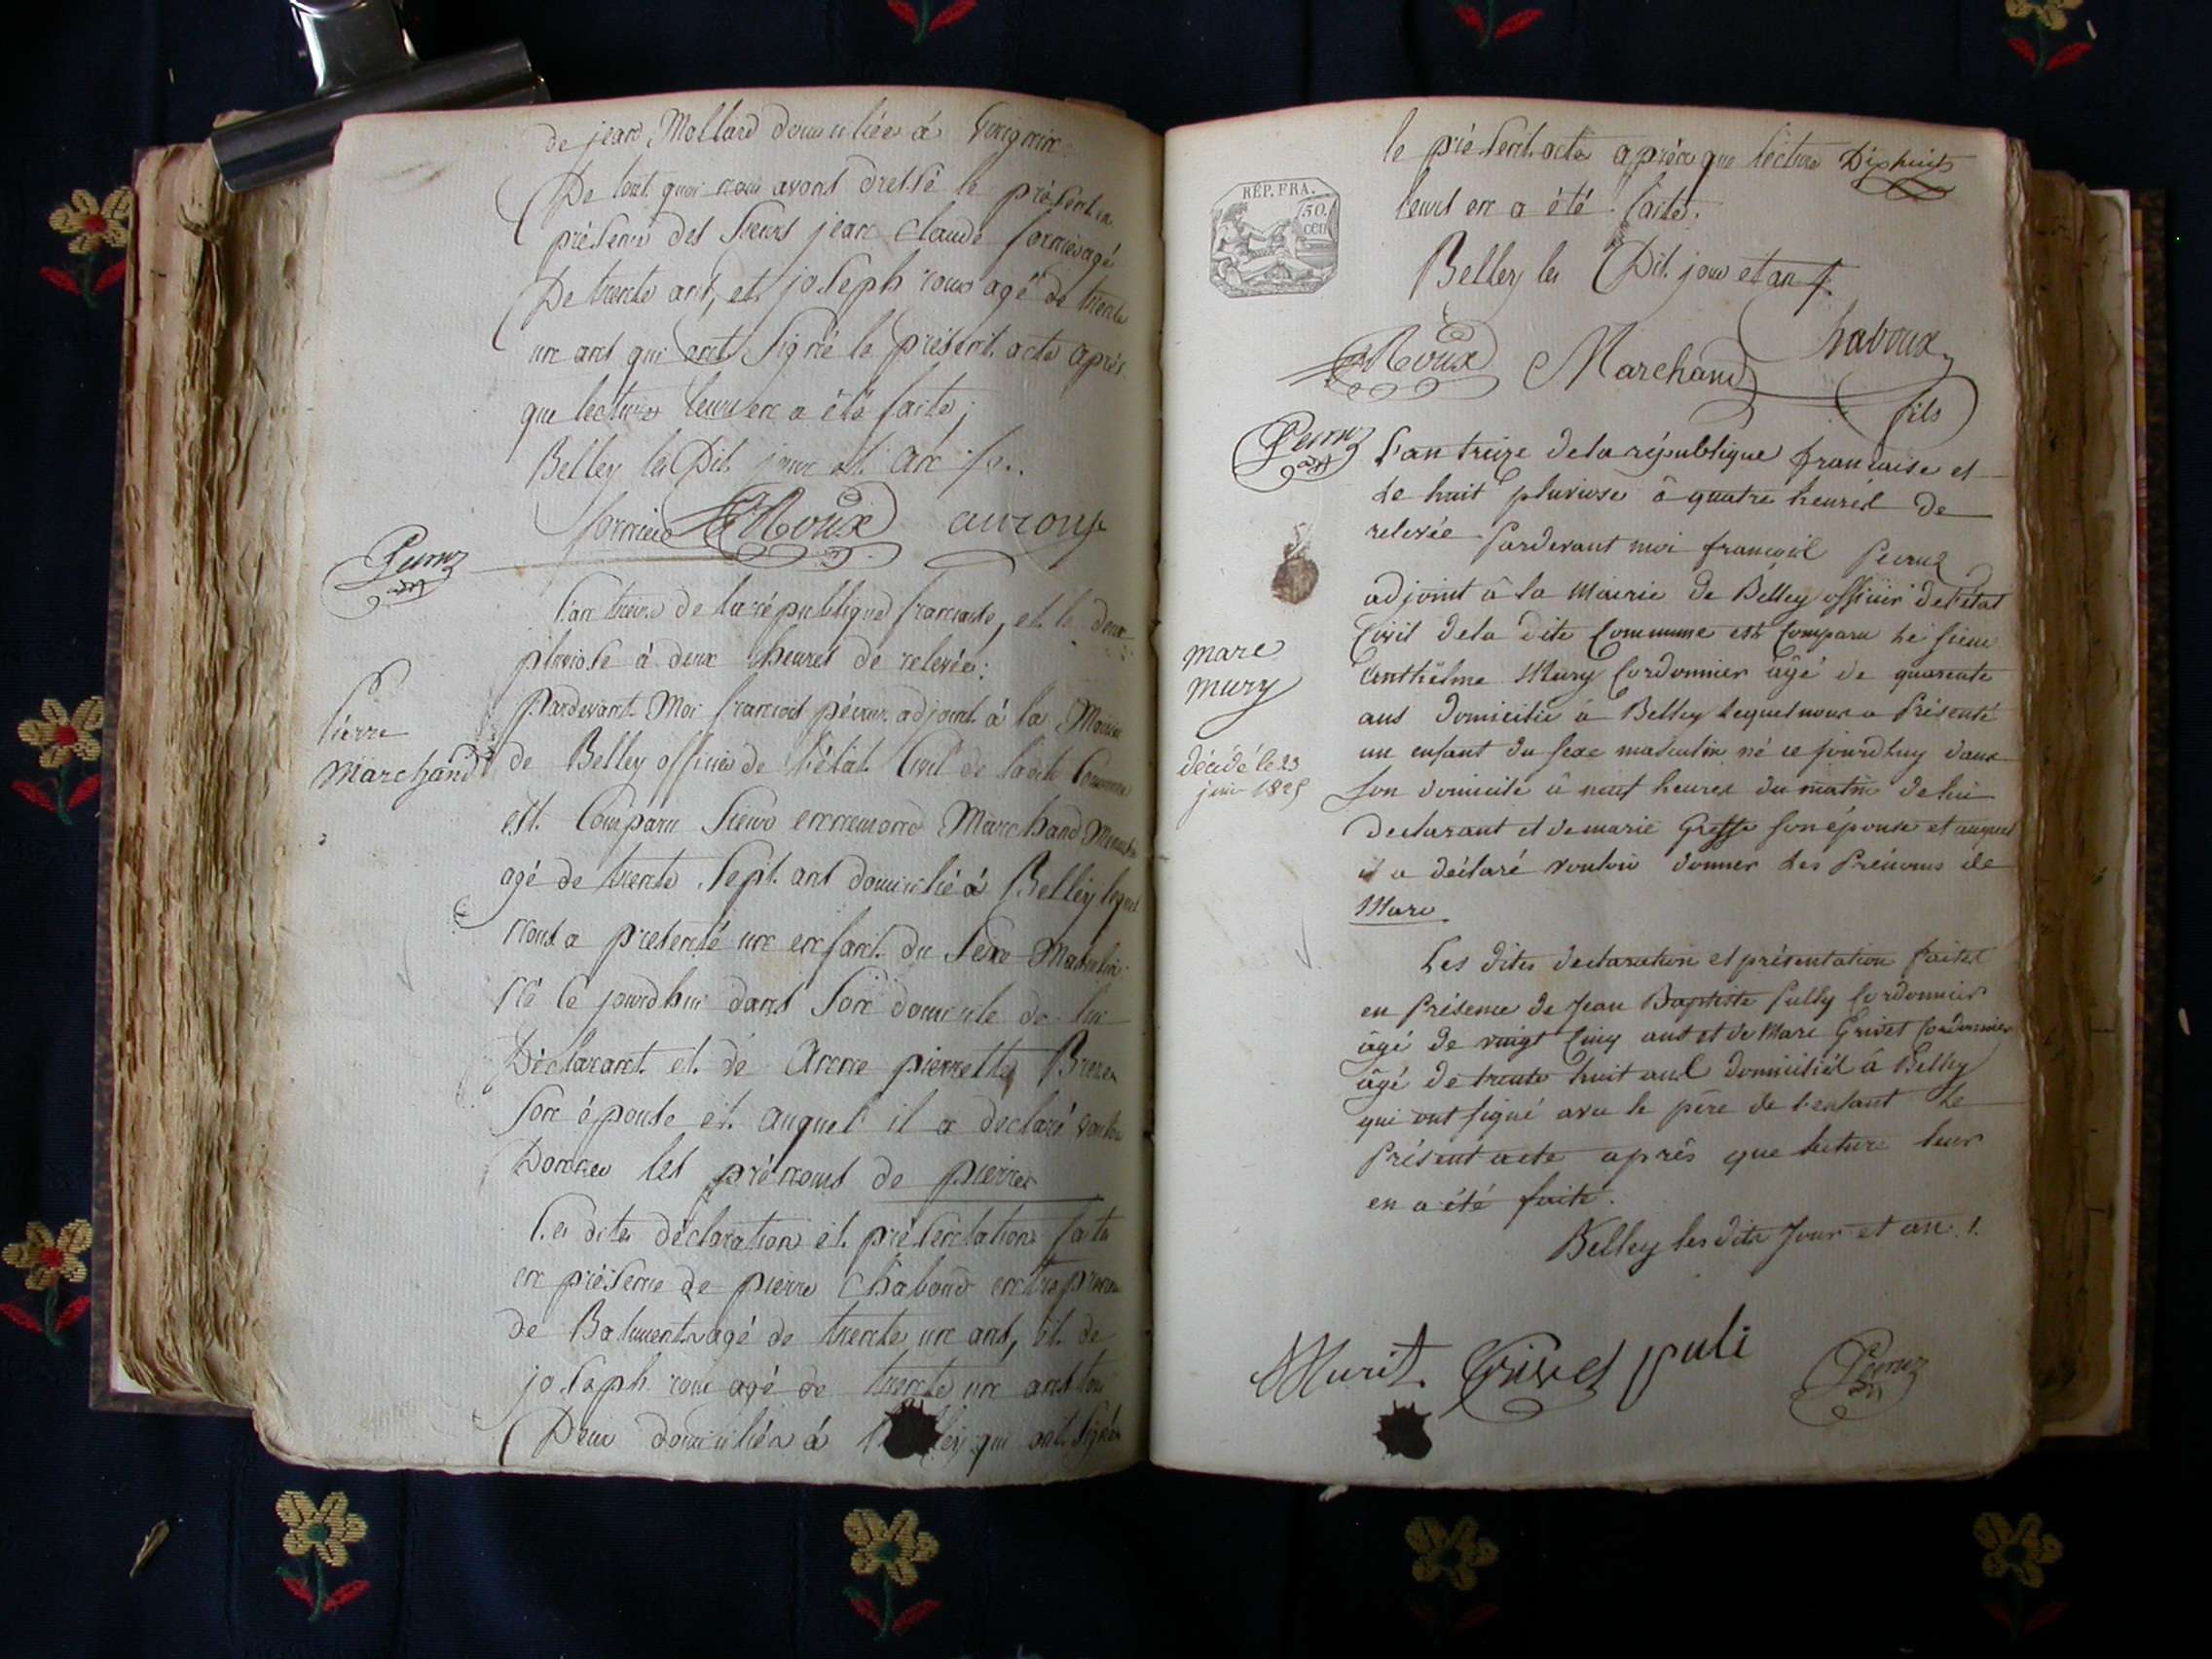 de jean Mollard domiciliée à
De tout quoi nous avons dressé le présent en
présence des sieurs jean claude fornier agé
De trente ans, et joseph roux agé de trente
un ans qui ont signé le présent acte après
que lecture leurs en a été faite;
Belley les Dit jour et an
fornier Roux
Peruz
adj
L'an treize de la république francaise, et le deux
pluviose à deux heures de relevée:
Pardevant Moi francois péruz adjoint à la Mairie
Pierre
Marchand
de Belley officier de l'état Civil de ladite Commune
est Comparu Sieur ennemond Marchand
agé de trente sept ans domicilié à Belley lequel
nous a presenté un enfant du sexe Masculin
né ce jourdhui dans son domicile de lui
Déclarant et de Anne pierrette
son épouse et auquel il a declaré vouloir
Donner les prénoms de pierre
Les dites déclaration et présentation faite
en présence de pierre Chaboud entrepreneur
de Batiments agé de trente un ans, et de
joseph roux agé de trente un ans tou
Deux domiciliés à Belley qui ont signé
le présent acte après que lecture Dixhuit
leurs en a été faite.
RÉP. FRA.
50.
cen
Belley les Dit jour et an
Roux Marchand Chaboux
fils
Peruz
adj
L'an treize de la république francaise et
le huit pluviose à quatre heures de
relevée Pardevant moi francois Peruz
adjoint à la Mairie de Belley officier de l'état
Civil de la dite Commune est Comparu le sieur
Anthelme Mury Cordonnier âgé de quarente
ans domicilié à Belley lequel nous a Présenté
un enfant du sexe masculin né ce jourdhuy dans
son domicile à neuf heures du matin de lui
declarant et de marie Greffe son épouse et auquel
il a déclaré vouloir donner les Prénoms de
Marc
marc
mury
décédé le 23
juin 1825
Les dites declaration et présentation faites
en Présence de Jean Baptiste Pully Cordonnier
âgé de vingt Cinq ans et de Marc Grivet Cordonnier
âgé de trente huit ans domiciliés à Belley
qui ont signé avec le père de l'enfant le
Présent acte après que lecture leur
en a été faite.
Belley les dits Jour et an.
Murit Grivet puli Peruz
adj